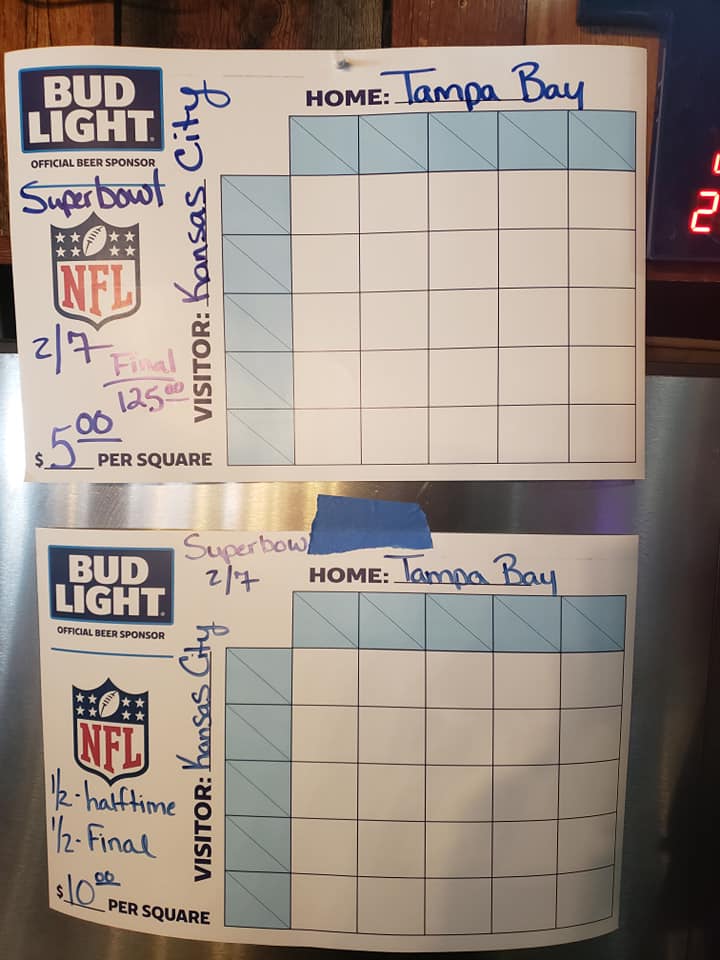 BUD
LIGHT
OFFICIAL BEER SPONSOR
Superbowl
NFL
2/7
Final
125.00
$ 5.00 PER SQUARE
VISITOR: Kansas City
HOME: Tampa Bay
BUD
LIGHT
OFFICIAL BEER SPONSOR
Superbow
2/7
NFL
1/2 - halftime
1/2 - Final
$ 10.00 PER SQUARE
VISITOR: Kansas City
HOME: Tampa Bay
2